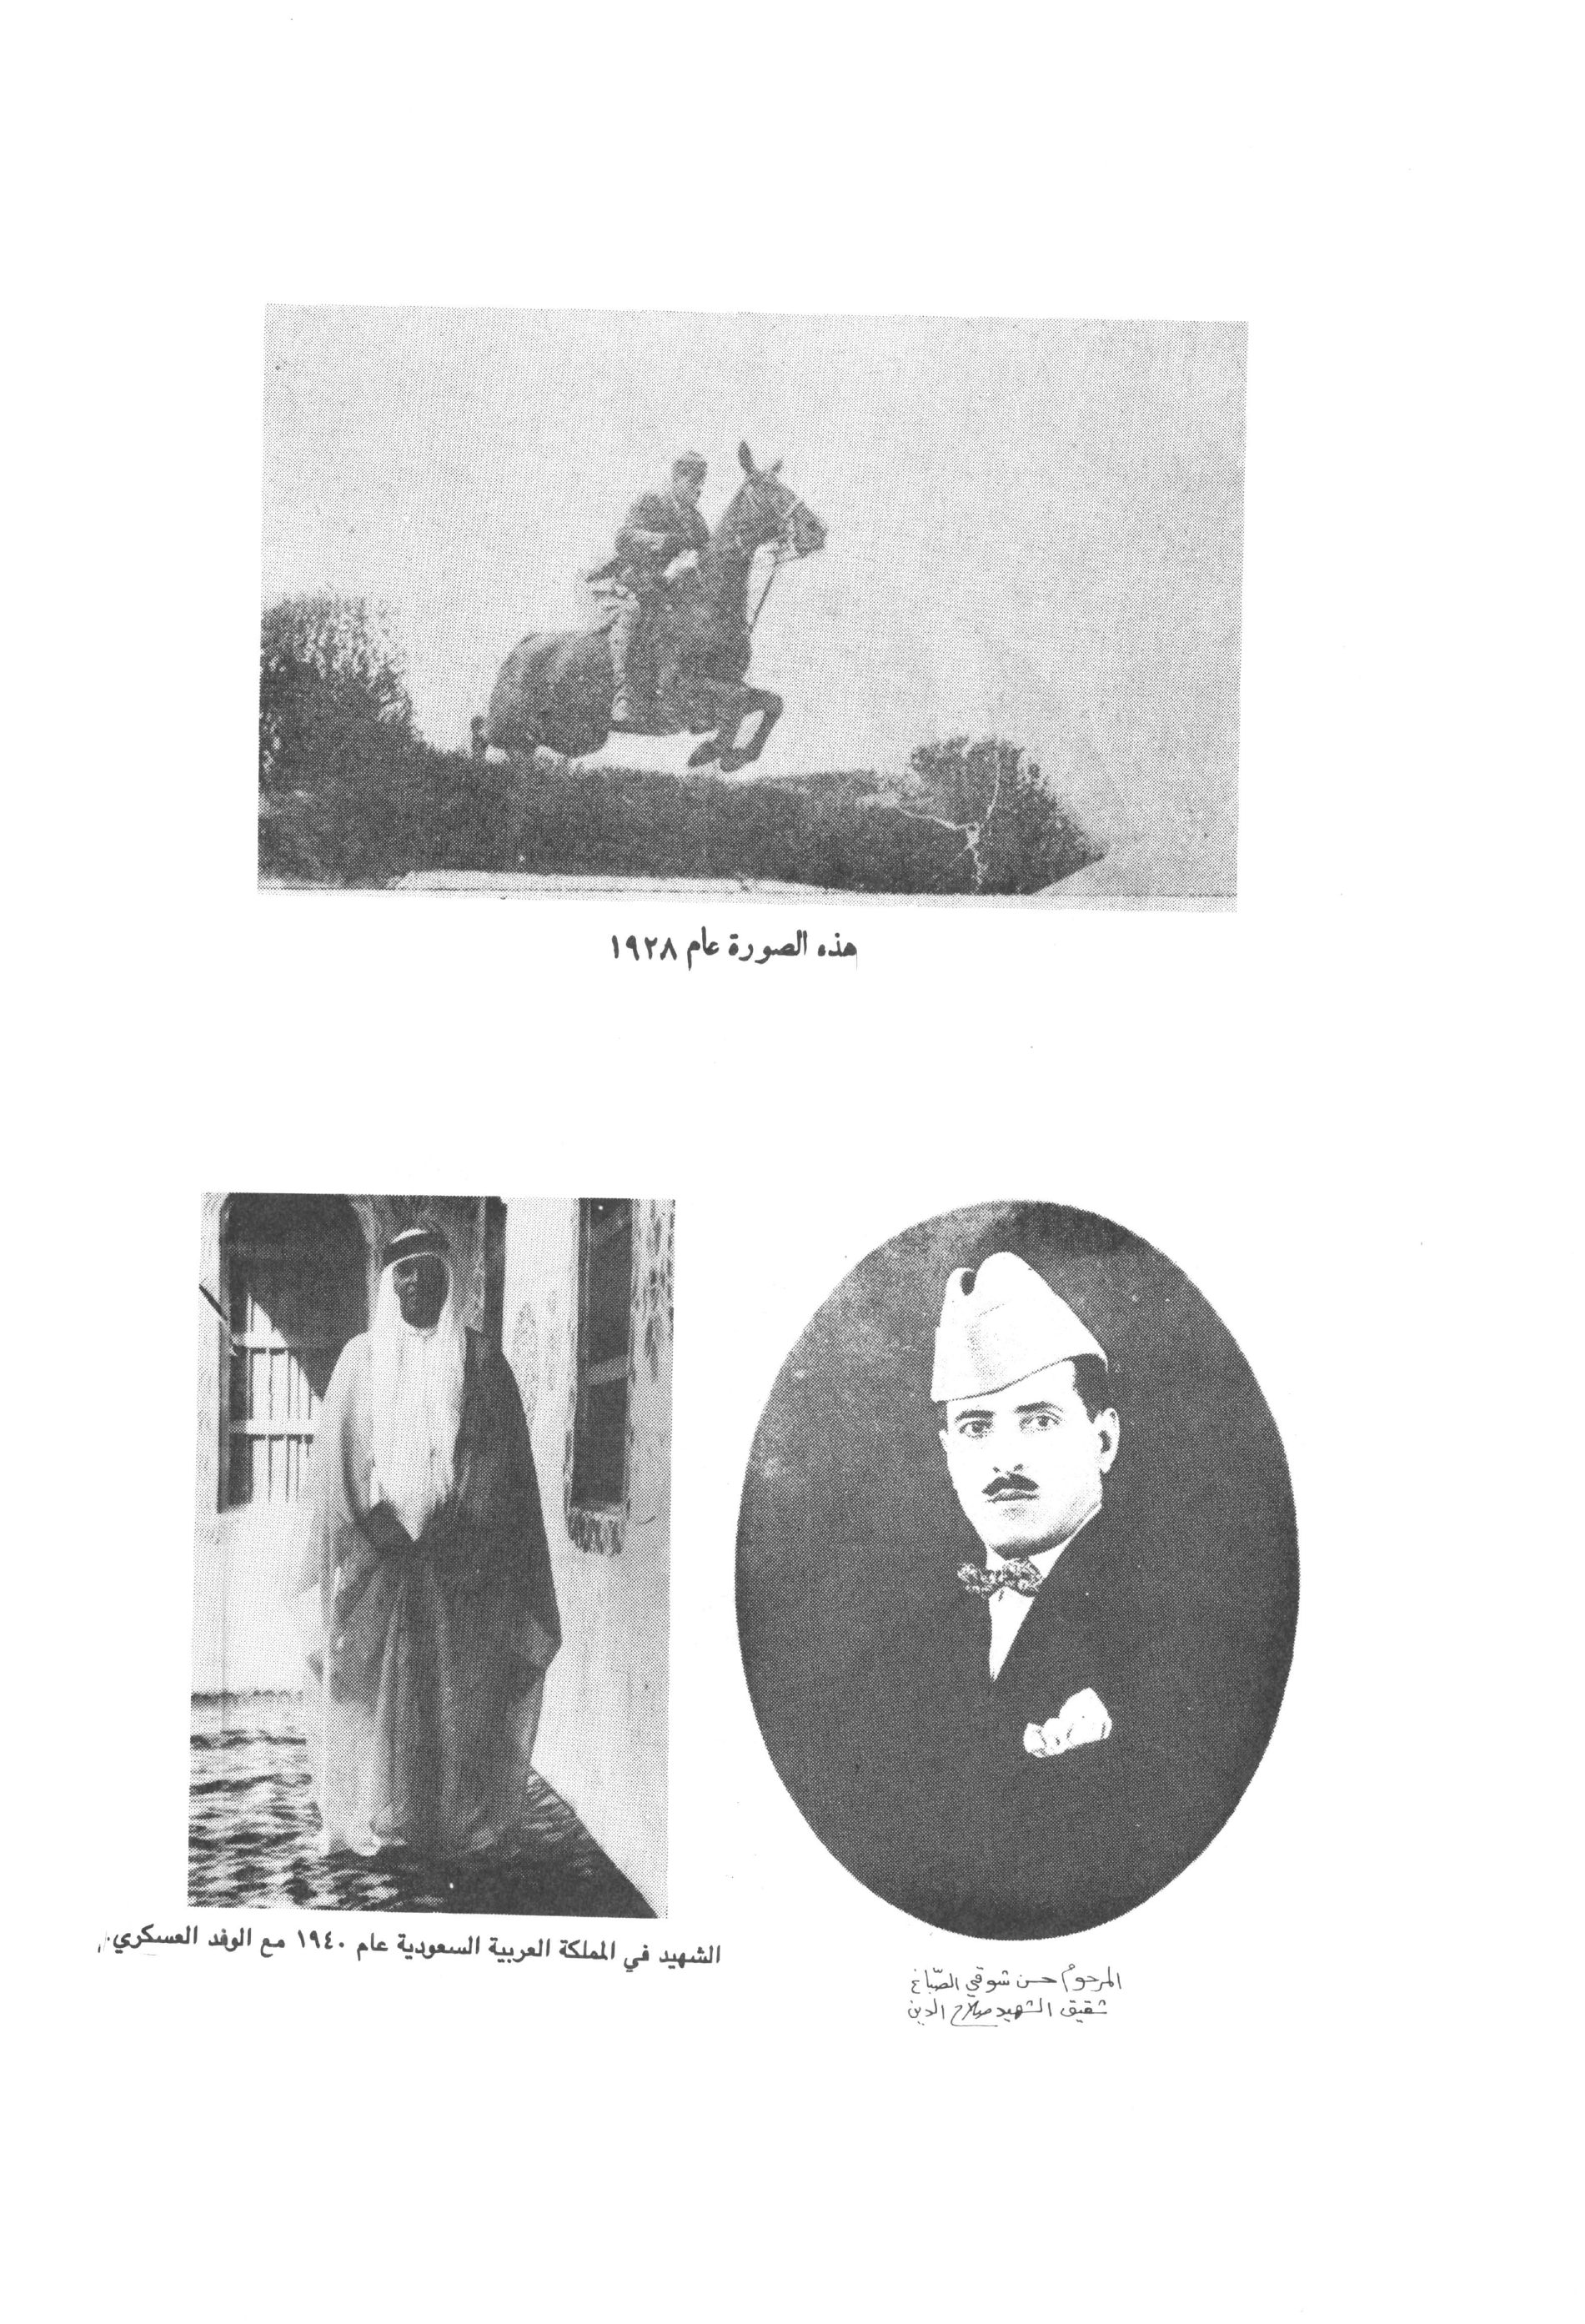 هذه الصورة عام ١٩٢٨
الشهيد في المملكة العربية السعودية عام ١٩٤٠ مع الوفد العسكري.
المرحوم حسن شوقي الصبّاغ
شقيق الشهيد صلاح الدين